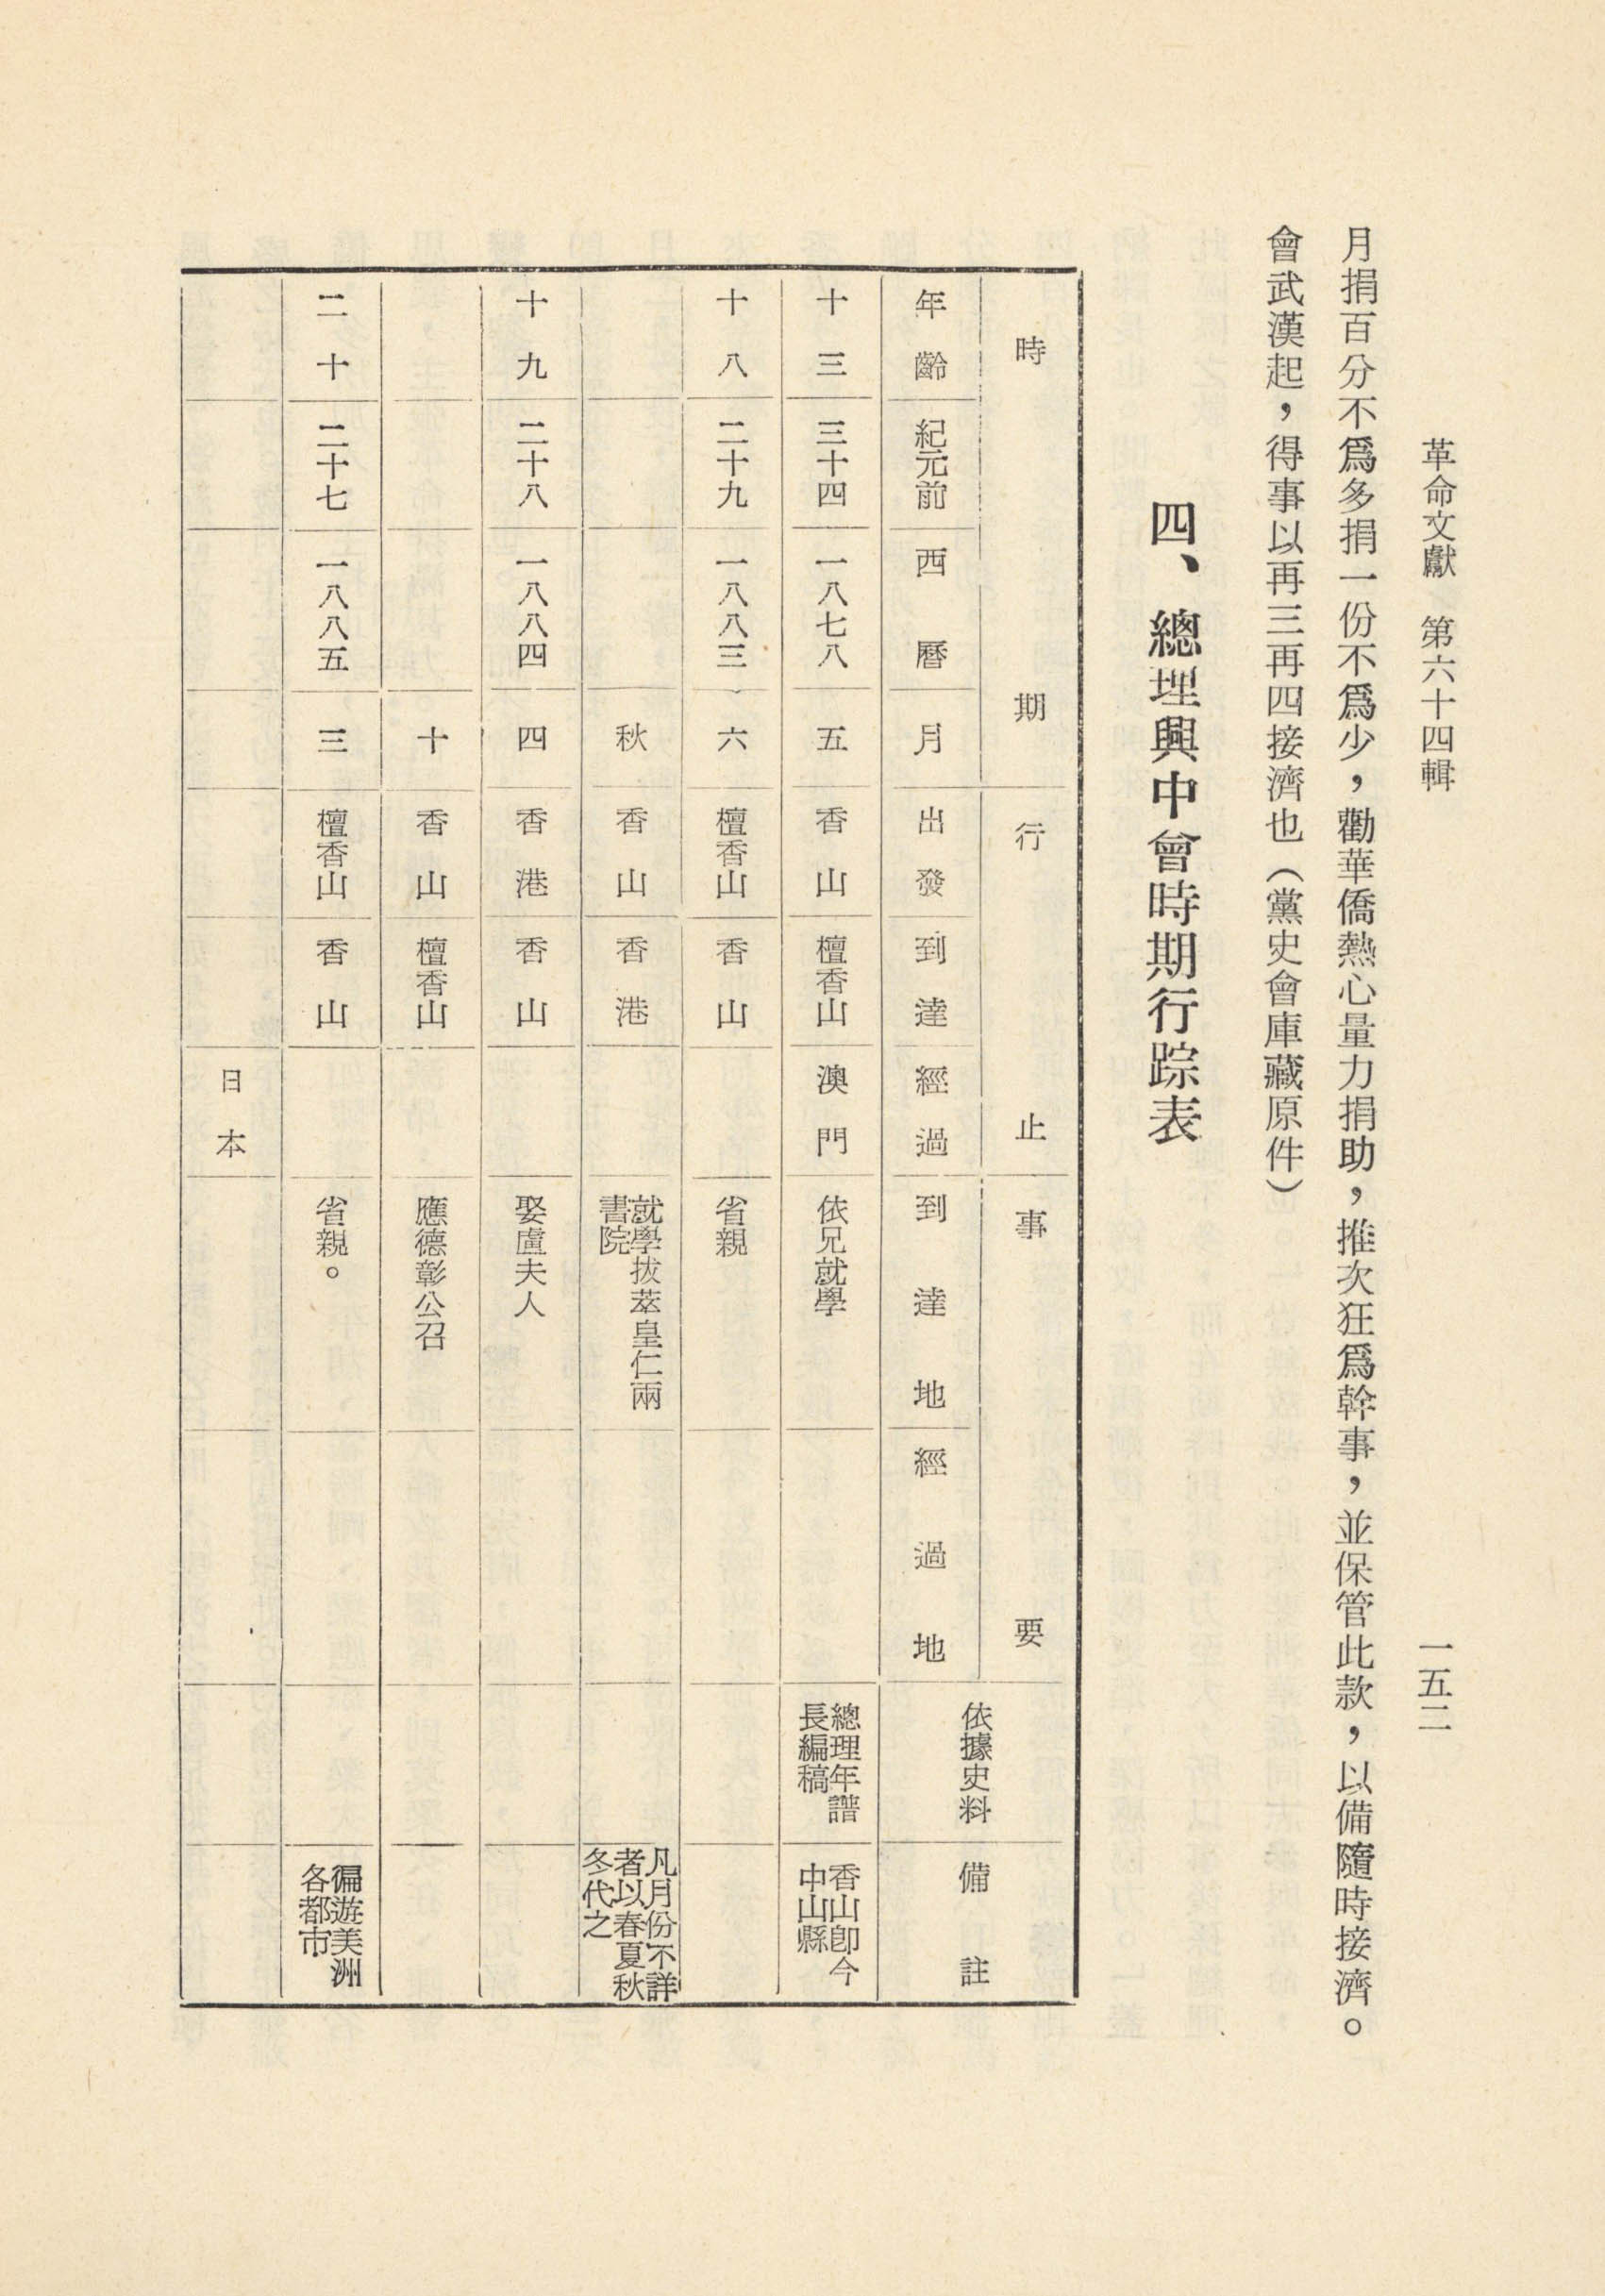 革命文獻　第六十四輯
一五二
月捐百分不爲多捐一份不爲少，勸華僑熱心量力捐助，推次狂爲幹事，並保管此款，以備隨時接濟。
會武漢起，得事以再三再四接濟也（黨史會庫藏原件）
四、總理興中會時期行踪表
時期
行止
事要
年齡
紀元前
西曆
月
出發
到達
經過
到達地
經過地
依據史料
備註
十三
三十四
一八七八
五
香山
檀香山
澳門
依兄就學
總理年譜
長編稿
香山卽今
中山縣
十八
二十九
一八八三
六
檀香山
香山
省親
秋
香山
香港
就學拔萃皇仁兩
書院
凡月份不詳
者以春夏秋
冬代之
十九
二十八
一八八四
四
香港
香山
娶盧夫人
十
香山
檀香山
應德彰公召
二十
二十七
一八八五
三
檀香山
香山
省親。
徧遊美洲
各都市
日本